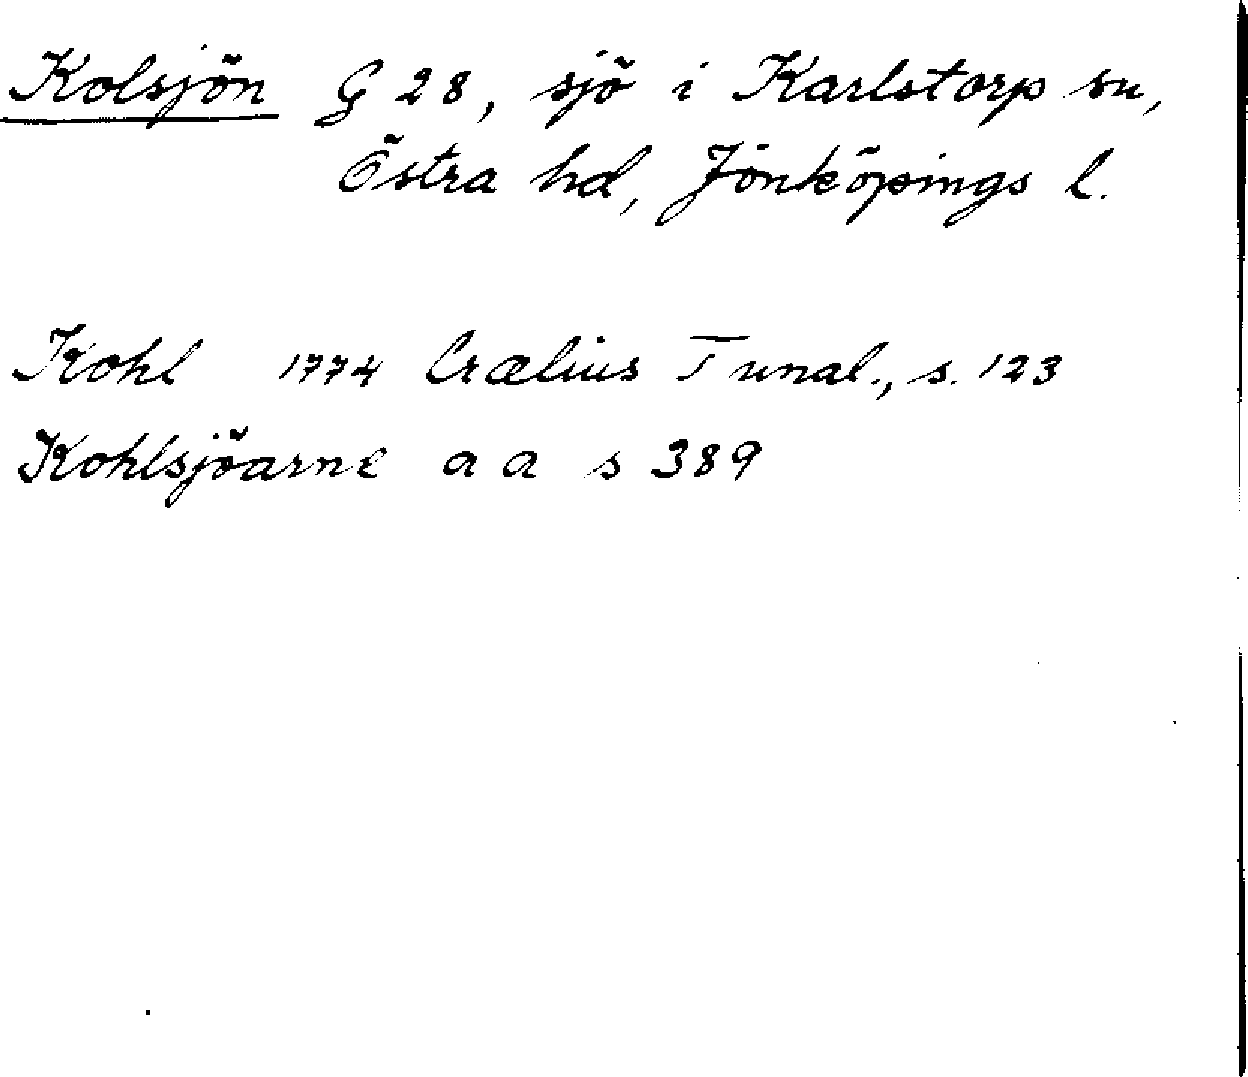 Kolsjön G 28, sjö i Karlstorp sn,
Östra hd, Jönköpings l.
Kohl 1774 Crælius Tunal., s. 123
Kohlsjöarne a a s 389